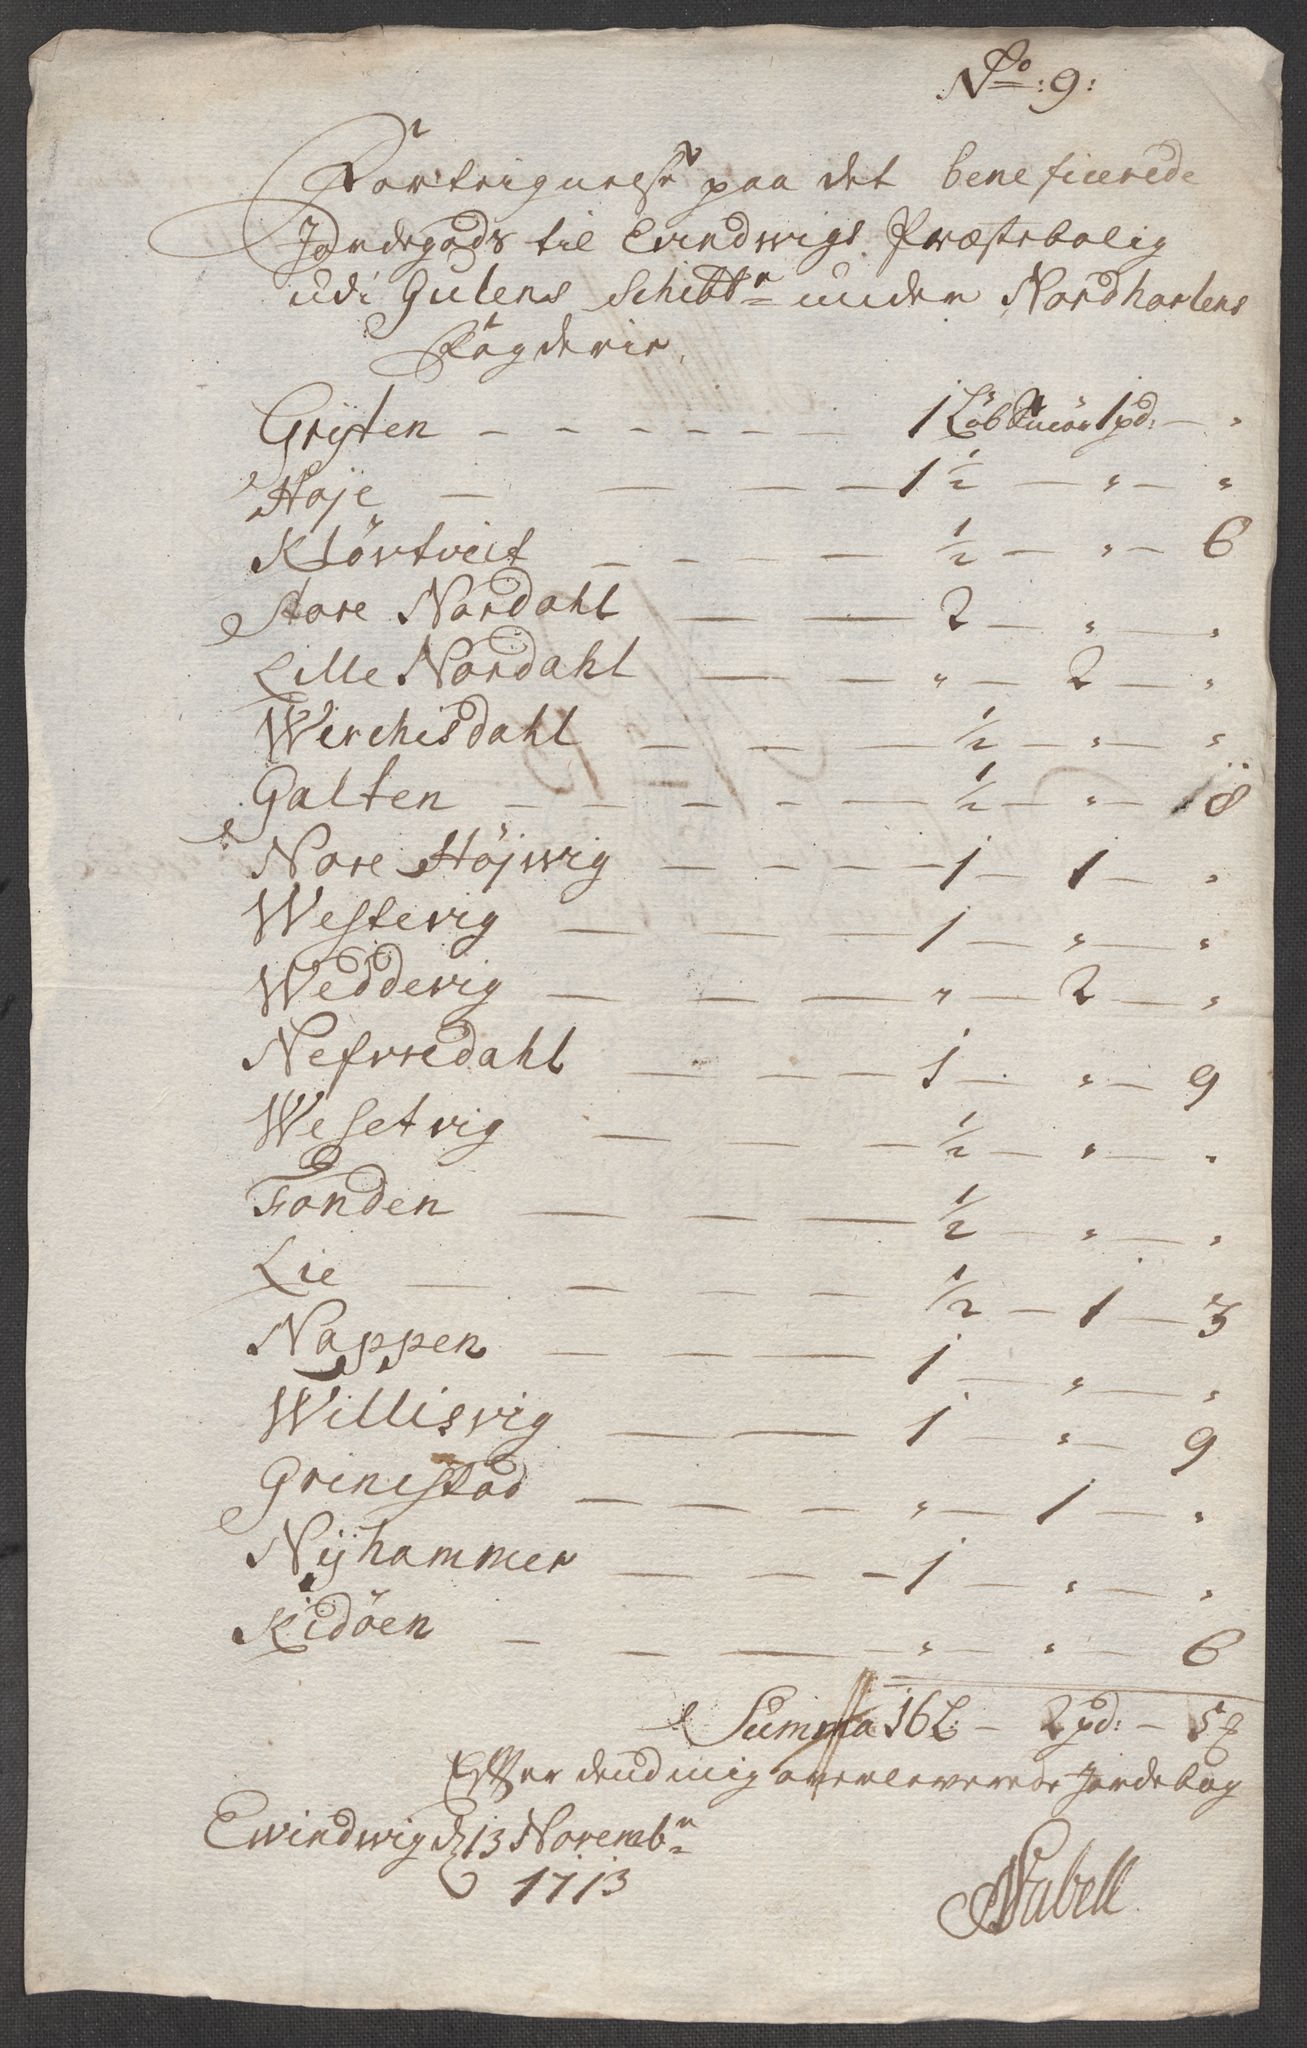 No: 9:
Forteignelse paa det beneficerede
Jordegods til Evindwigs Præstebolig
udi Gulens Schibbr under Nordhorlens
Fögderie.
Grÿten — — — — — — 1 Löb Smör 1 pd: — "
Höje — — — — 1 1/2 — " — "
Klövtveit — — — — 1/2 — " — 6
Store Nordahl — — — 2 — " — "
Lille Nordahl — — " — 2 — "
Werchisdahl — — — 1/2 — " — "
Galten — — — — — — 1/2 — " — 18
Nore Höjwig — — — — 1 — 1 — "
Westevig — — — 1 — " — "
Weddevig — — — " — 2 — "
Nefwredahl — — — — 1 — " — 9
Wesetvig — — — 1/2 — " — "
Fonden — — — 1/2 — " — "
Lie — — — — 1/2 — 1 — 3
Nappen — — — 1 — " — "
Willisvig — — 1 — " — 9
Grinistad — — — " — 1 — "
Nÿhammer — — — 1 — " — "
Kidöen — — — " — " — 6
Summa 16 L: — 2 pd: — 3
Efter dend mig overleverede Jordebog
Ewindwig d 13 Novembr
1713
Nabell